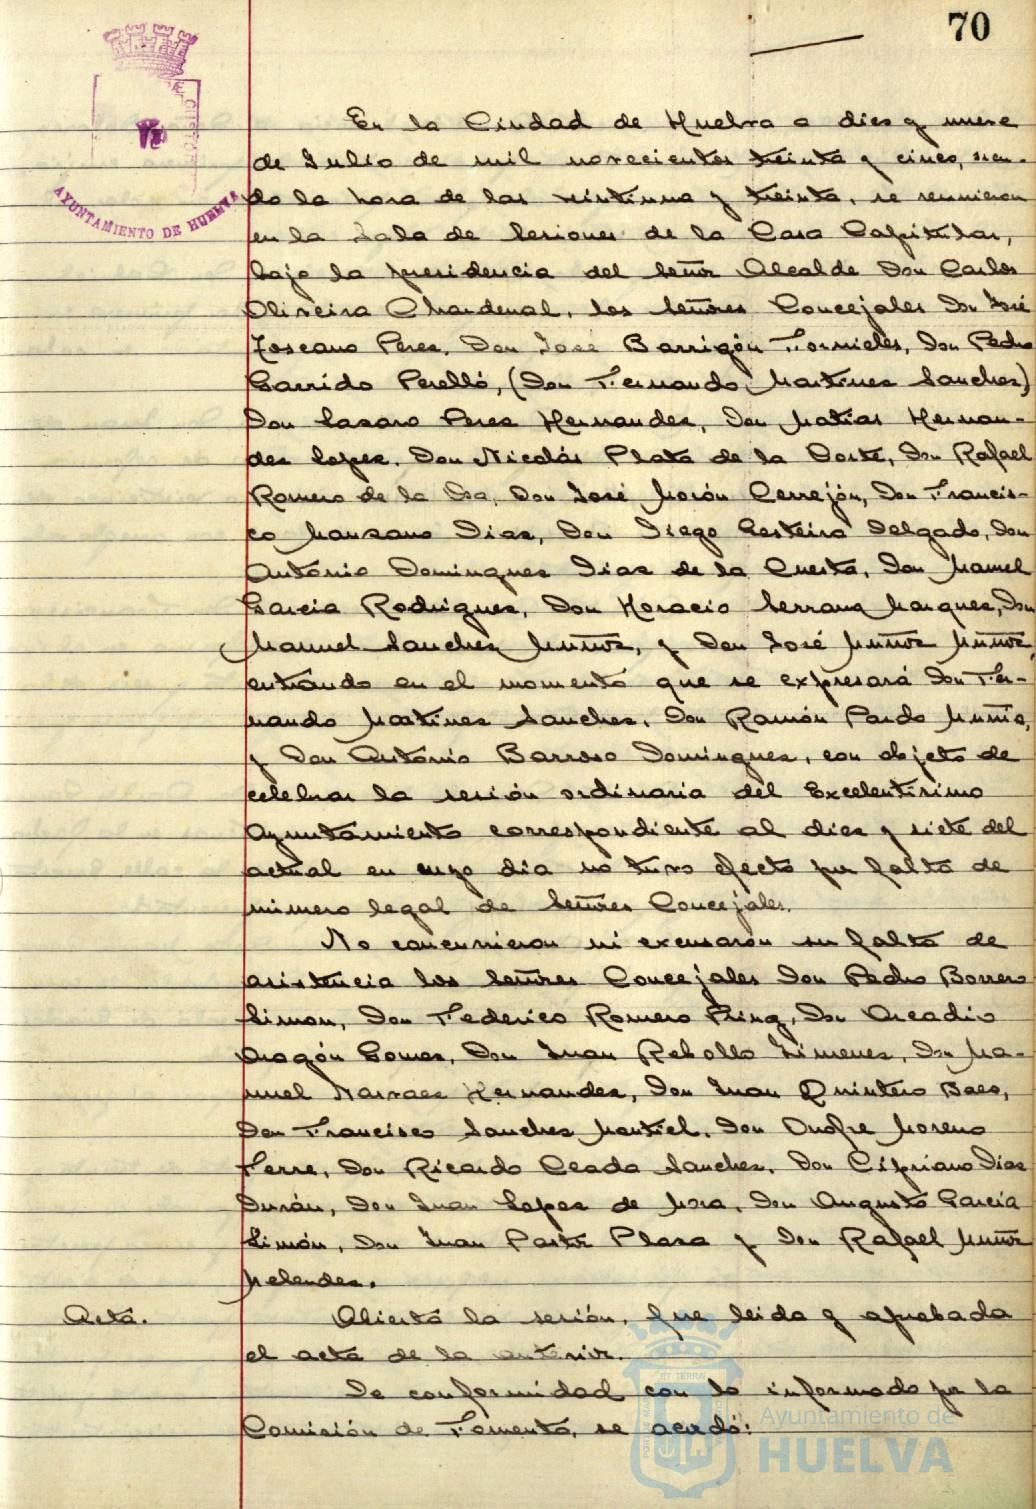 70
AYUNTAMIENTO DE HUELVA
En la Ciudad de Huelva a diez y nueve
de Julio de mil novecientos treinta y cinco, sien-
do la hora de las veintiuna y treinta, se reunieron
en la Sala de Sesiones de la Casa Capitular,
bajo la presidencia del Señor Alcalde Don Carlos
Oliveira Chardenal, los Señores Concejales Don José
Toscano Perez, Don José Barrigón Fornieles, Don Pedro
Garrido Perelló, (Don Fernando Martinez Sanchez)
Don Lazaro Perez Hernandez, Don Matias Hernan-
dez Lopez, Don Nicolás Plata de la Corte, Don Rafael
Romero de la Osa, Don José Morón Cerrejón, Don Francis-
co Manzano Diaz, Don Diego Gesteiro Delgado, Don
Antonio Dominguez Diaz de la Cuesta, Don Manuel
Garcia Rodriguez, Don Horacio Serrano Marquez, Don
Manuel Sanchez Muñoz, y Don José Muñoz Muñoz,
entrando en el momento que se expresará Don Fer-
nando Martinez Sanchez, Don Ramón Pardo Muñiz,
y Don Antonio Barroso Dominguez, con objeto de
celebrar la sesión ordinaria del Excelentisimo
Ayuntamiento correspondiente al diez y siete del
actual en cuyo dia no tuvo efecto por falta de
número legal de Señores Concejales.
No concurrieron ni excusaron su falta de
asistencia los Señores Concejales Don Pedro Borrero
Limon, Don Federico Romero Pring, Don Arcadio
Aragón Gomez, Don Juan Rebollo Jimenez, Don Ma-
nuel Narvaez Hernandez, Don Juan Quintero Baez,
Don Francisco Sanchez Montiel, Don Onofre Moreno
Ferre, Don Ricardo Ceada Sanchez, Don Cipriano Diaz
Durán, Don Juan Lopez de Mora, Don Augusto Garcia
Limón, Don Juan Pastor Plaza y Don Rafael Muñoz
Melendez.
Acta. Abierta la sesión, fue leida y aprobada
el acta de la anterior.
De conformidad con lo informado por la
Comisión de Fomento, se acordó:
Ayuntamiento de
HUELVA